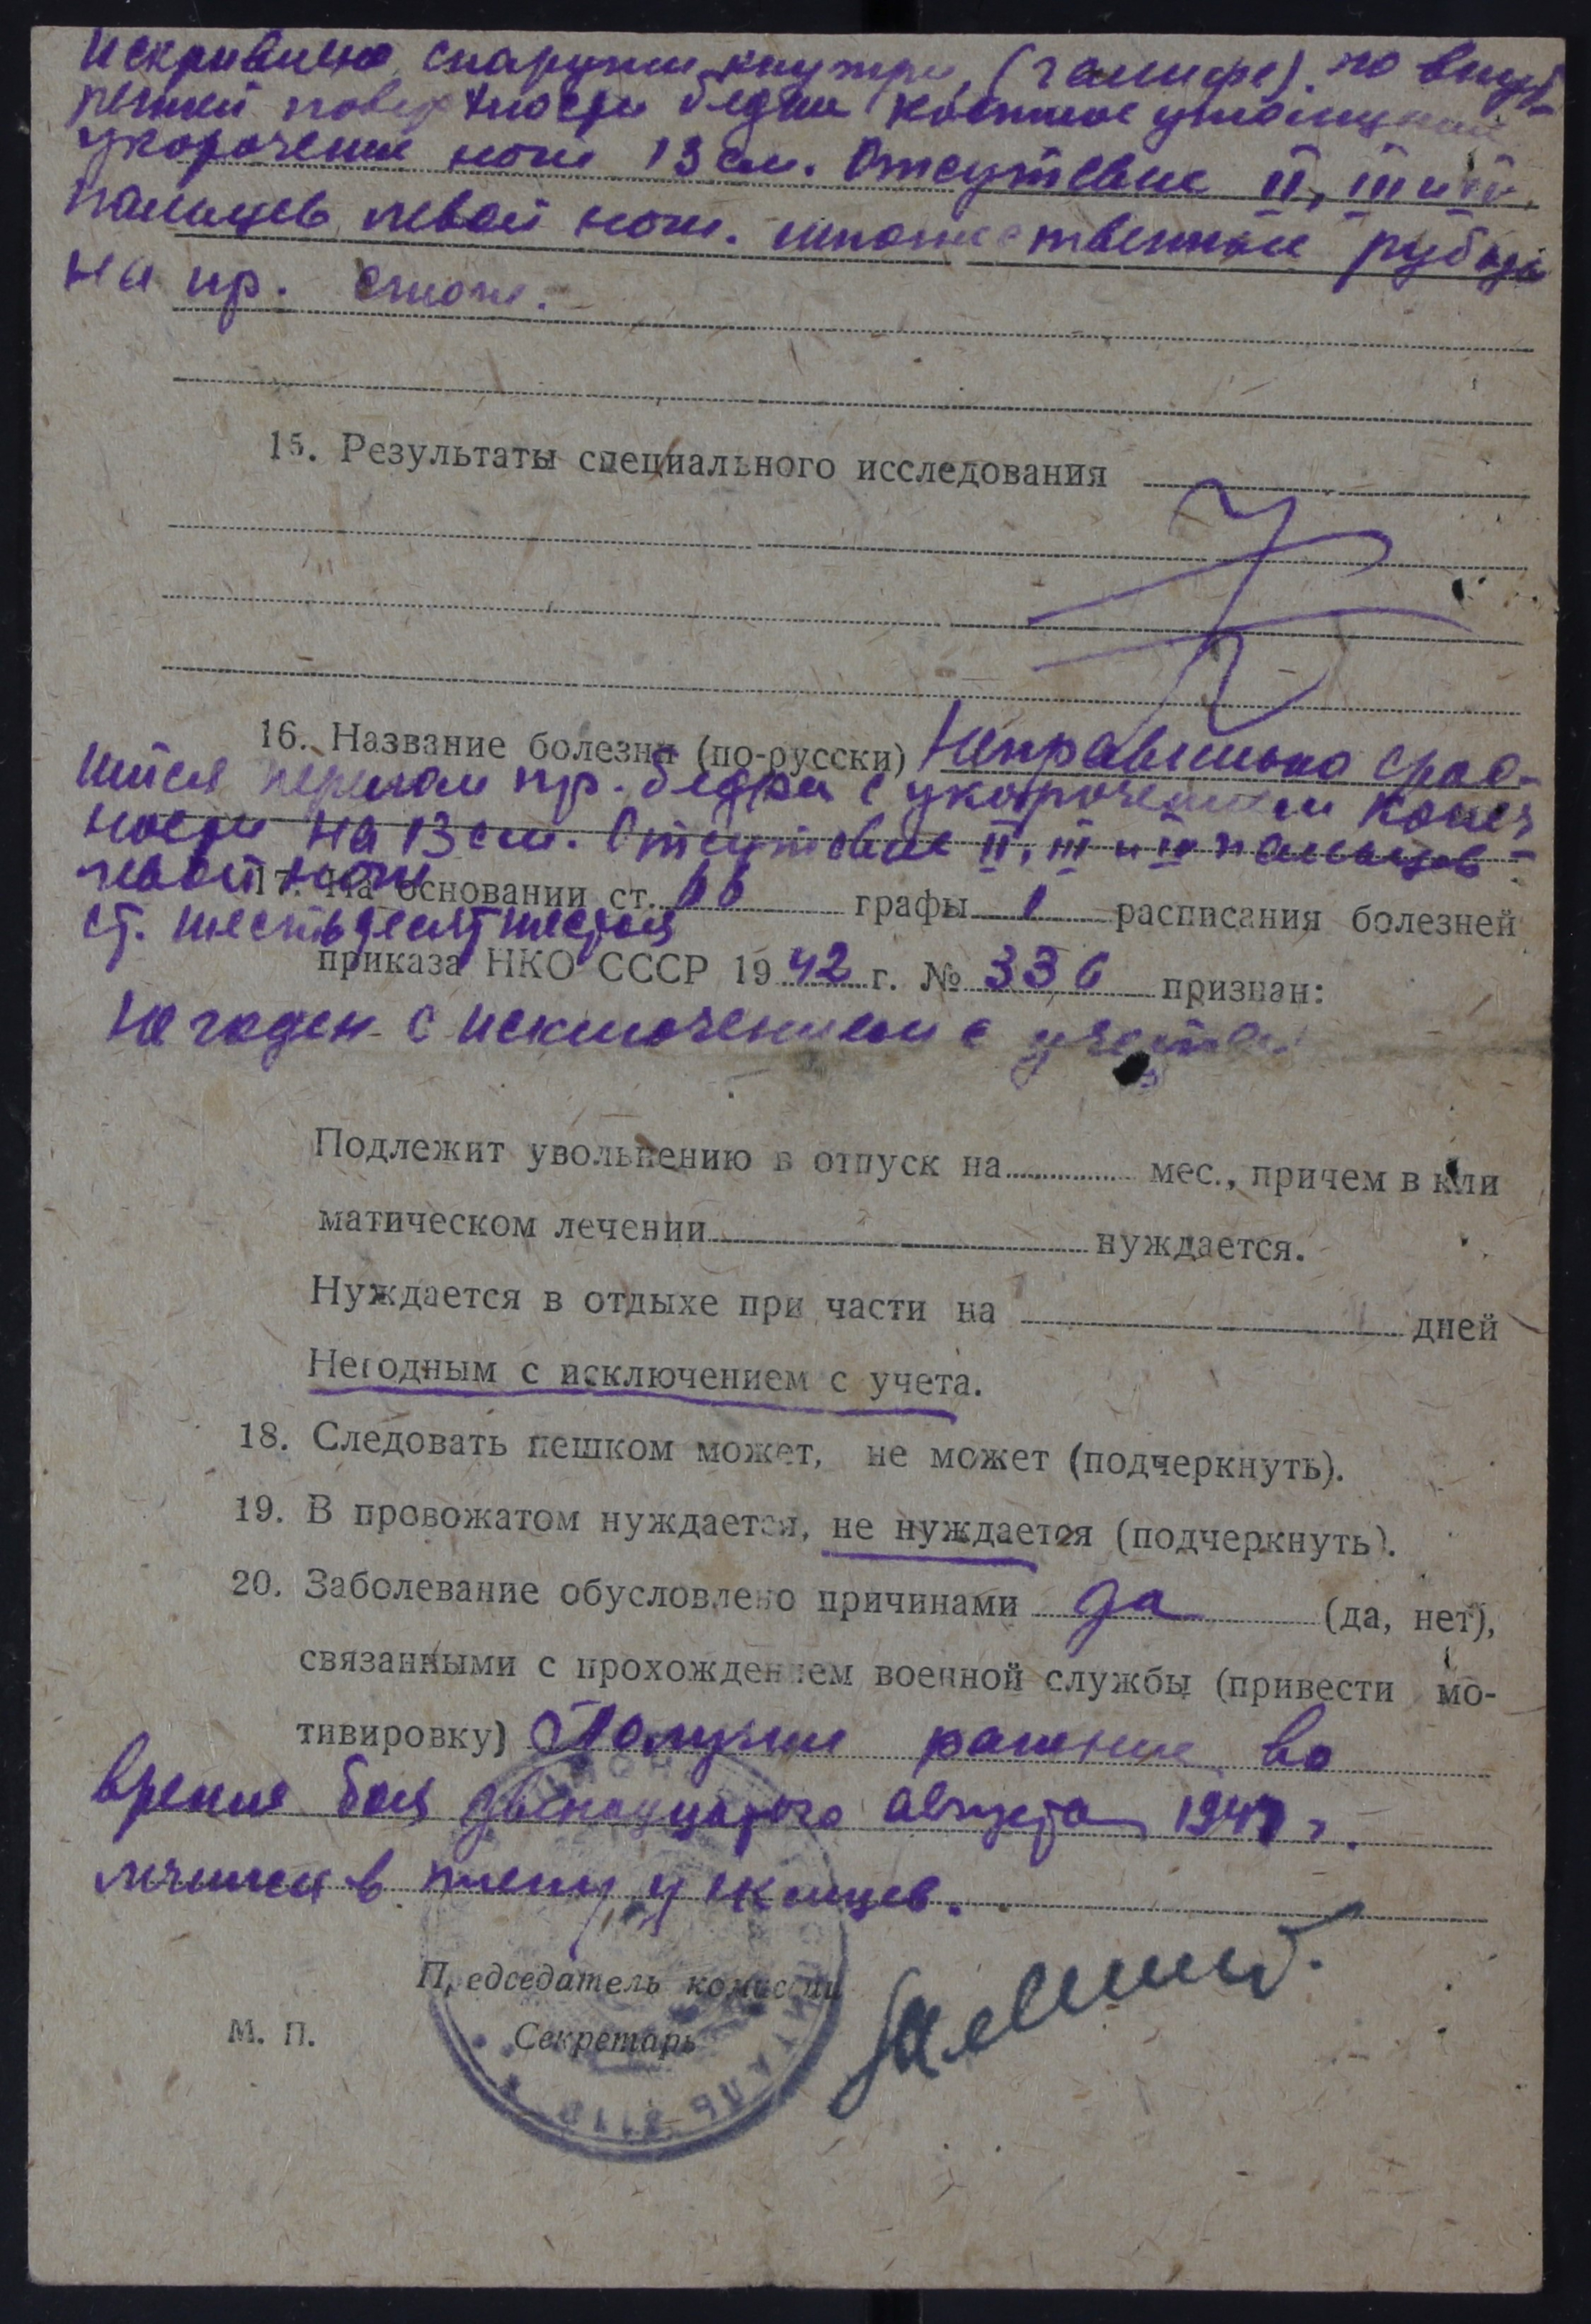 Искривлено снаружи кнутри, (галифе). по внут-
ренней поверхности бедра костное утолщение
укорочение ноги 13 см. Отсутствие II, III и IV
пальцев левой ноги. множественные рубцы
на пр. стопе.
15. Результаты специального исследования
16. Название болезни (по-русски) Неправильно срос-
шийся перелом пр. бедра с укорочением конеч
ности на 13 см. Отсутствие II, III и IV пальцев
левой ноги
17. На основании ст. 66 графы 1 расписания болезней
ст. шестьдесят шестая
приказа НКО СССР 1942 г. № 336 признан:
Не годен с исключением с учета
Подлежит увольнению в отпуск на мес., причем в кли
матическом лечении нуждается.
Нуждается в отдыхе при части на дней
Негодным с исключением с учета.
18. Следовать пешком может, не может (подчеркнуть).
19. В провожатом нуждается, не нуждается (подчеркнуть).
20. Заболевание обусловлено причинами да (да, нет),
связанными с прохождением военной службы (привести мо-
тивировку) Получил ранение во
время боя двенадцатого августа 194 г.
лечился в плену у немцев.
Председатель комиссии
М. П. Секретарь